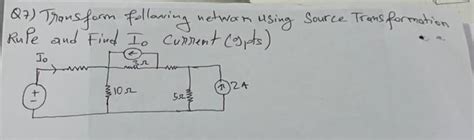 Q7) Transform following network using Source Transformation
Rule and Find Io Current (9pts)
Io
3Ω
10Ω
5Ω
2A